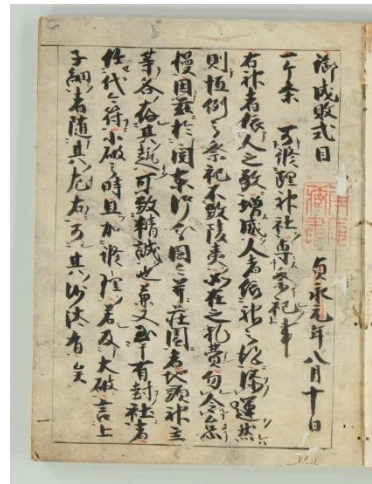 御成敗式目 貞永元年八月十日
一ケ条 可修理神社専祭祀事
右神者依人之敬増威人者依神之徳添運然
則恒例之祭祀不致陵夷如在之礼奠勿令怠
慢因茲於関東御分国々并荘園者地頭神主
等各存其趣可致精誠也兼又至有封社者
任代々符小破之時且加修理若及大破言上
子細者随其左右可其沙汰有矣